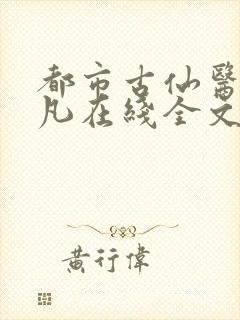 都市古仙醫
凡在綫全文
黄行偉